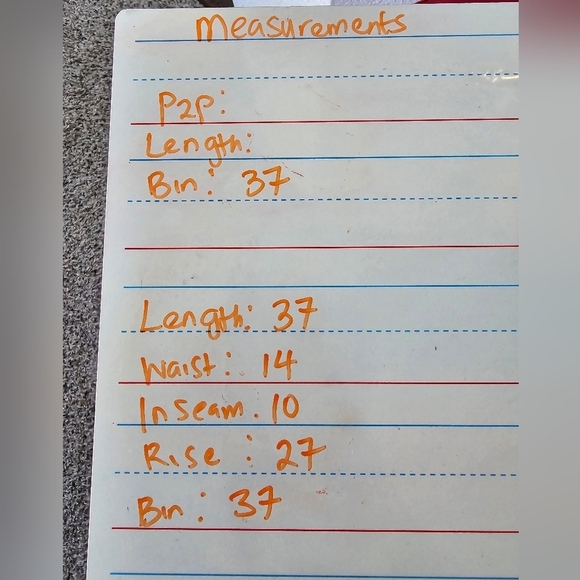 Measurements
P2P:
Length:
Bin: 37
Length: 37
Waist: 14
Inseam. 10
Rise: 27
Bin: 37